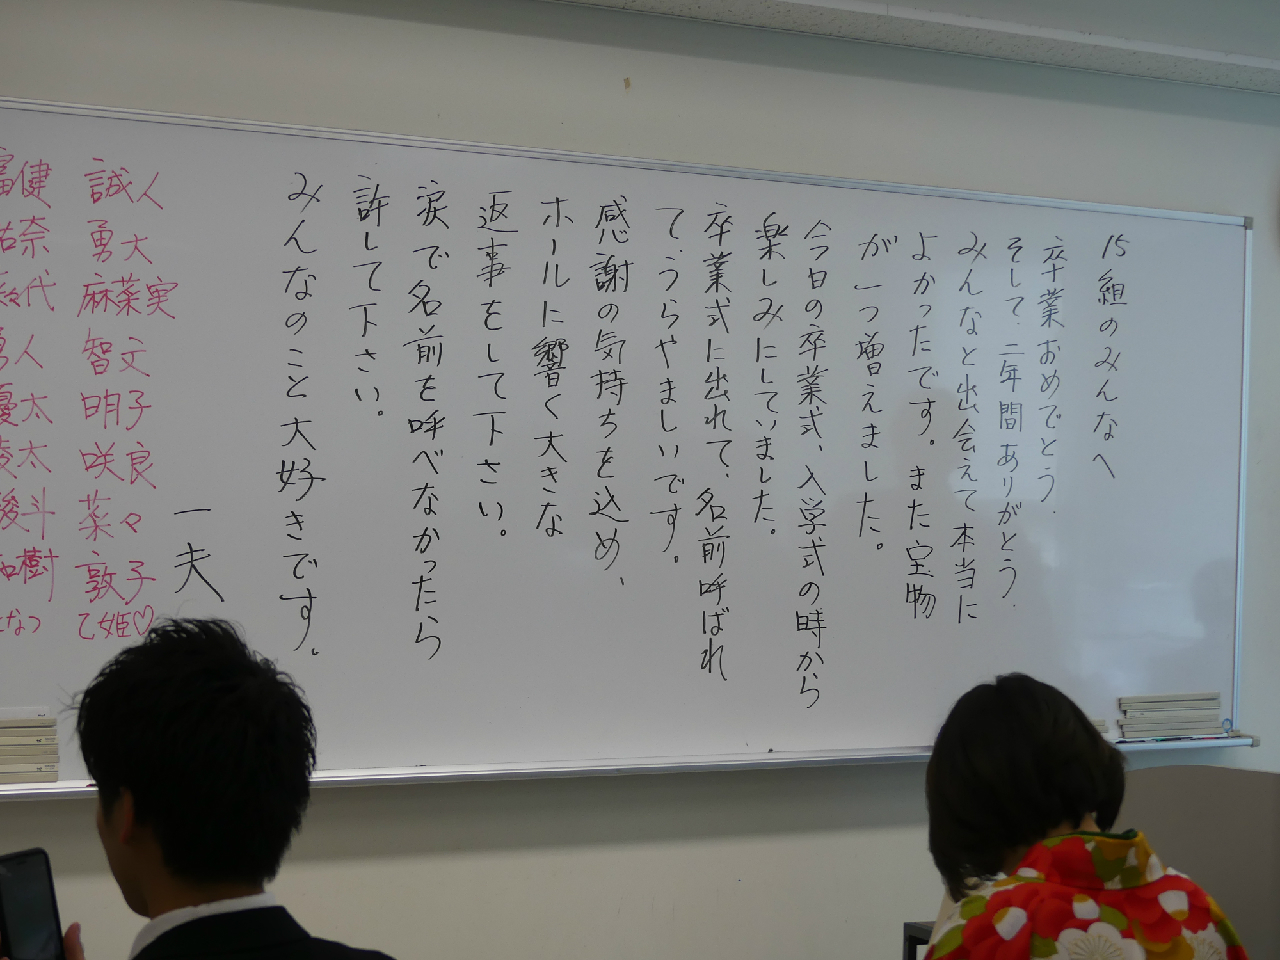 15組のみんなへ
卒業おめでとう.
そして、二年間ありがとう.
みんなと出会えて本当に
よかったです。また宝物
が一つ増えました。
今日の卒業式、入学式の時から
楽しみにしていました。
卒業式に出れて、名前呼ばれ
て、うらやましいです。
感謝の気持ちを込め、
ホールに響く大きな
返事をして下さい。
涙で名前を呼べなかったら
許して下さい。
みんなのこと大好きです。
一夫
誠人
勇大
麻菜実
智文
明子
咲良
菜々
敦子
乙姫♡
健
奈
代
人
優太
太
斗
樹
なつ